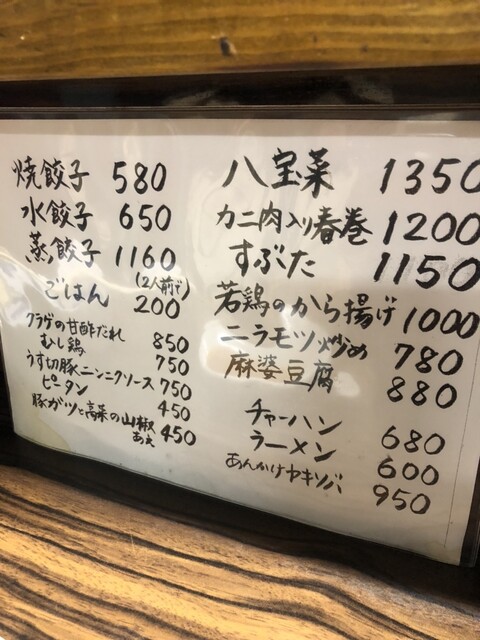 焼餃子 580
水餃子 650
蒸餃子 1160
(2人前で)
ごはん 200
クラゲの甘酢だれ 850
むし鶏 750
うす切豚ニンニクソース 750
ピータン 450
豚ガツと高菜の山椒
あえ 450
八宝菜 1350
カニ肉入り春巻 1200
すぶた 1150
若鶏のから揚げ 1000
ニラモツ炒め 780
麻婆豆腐 880
チャーハン 680
ラーメン 600
あんかけヤキソバ 950